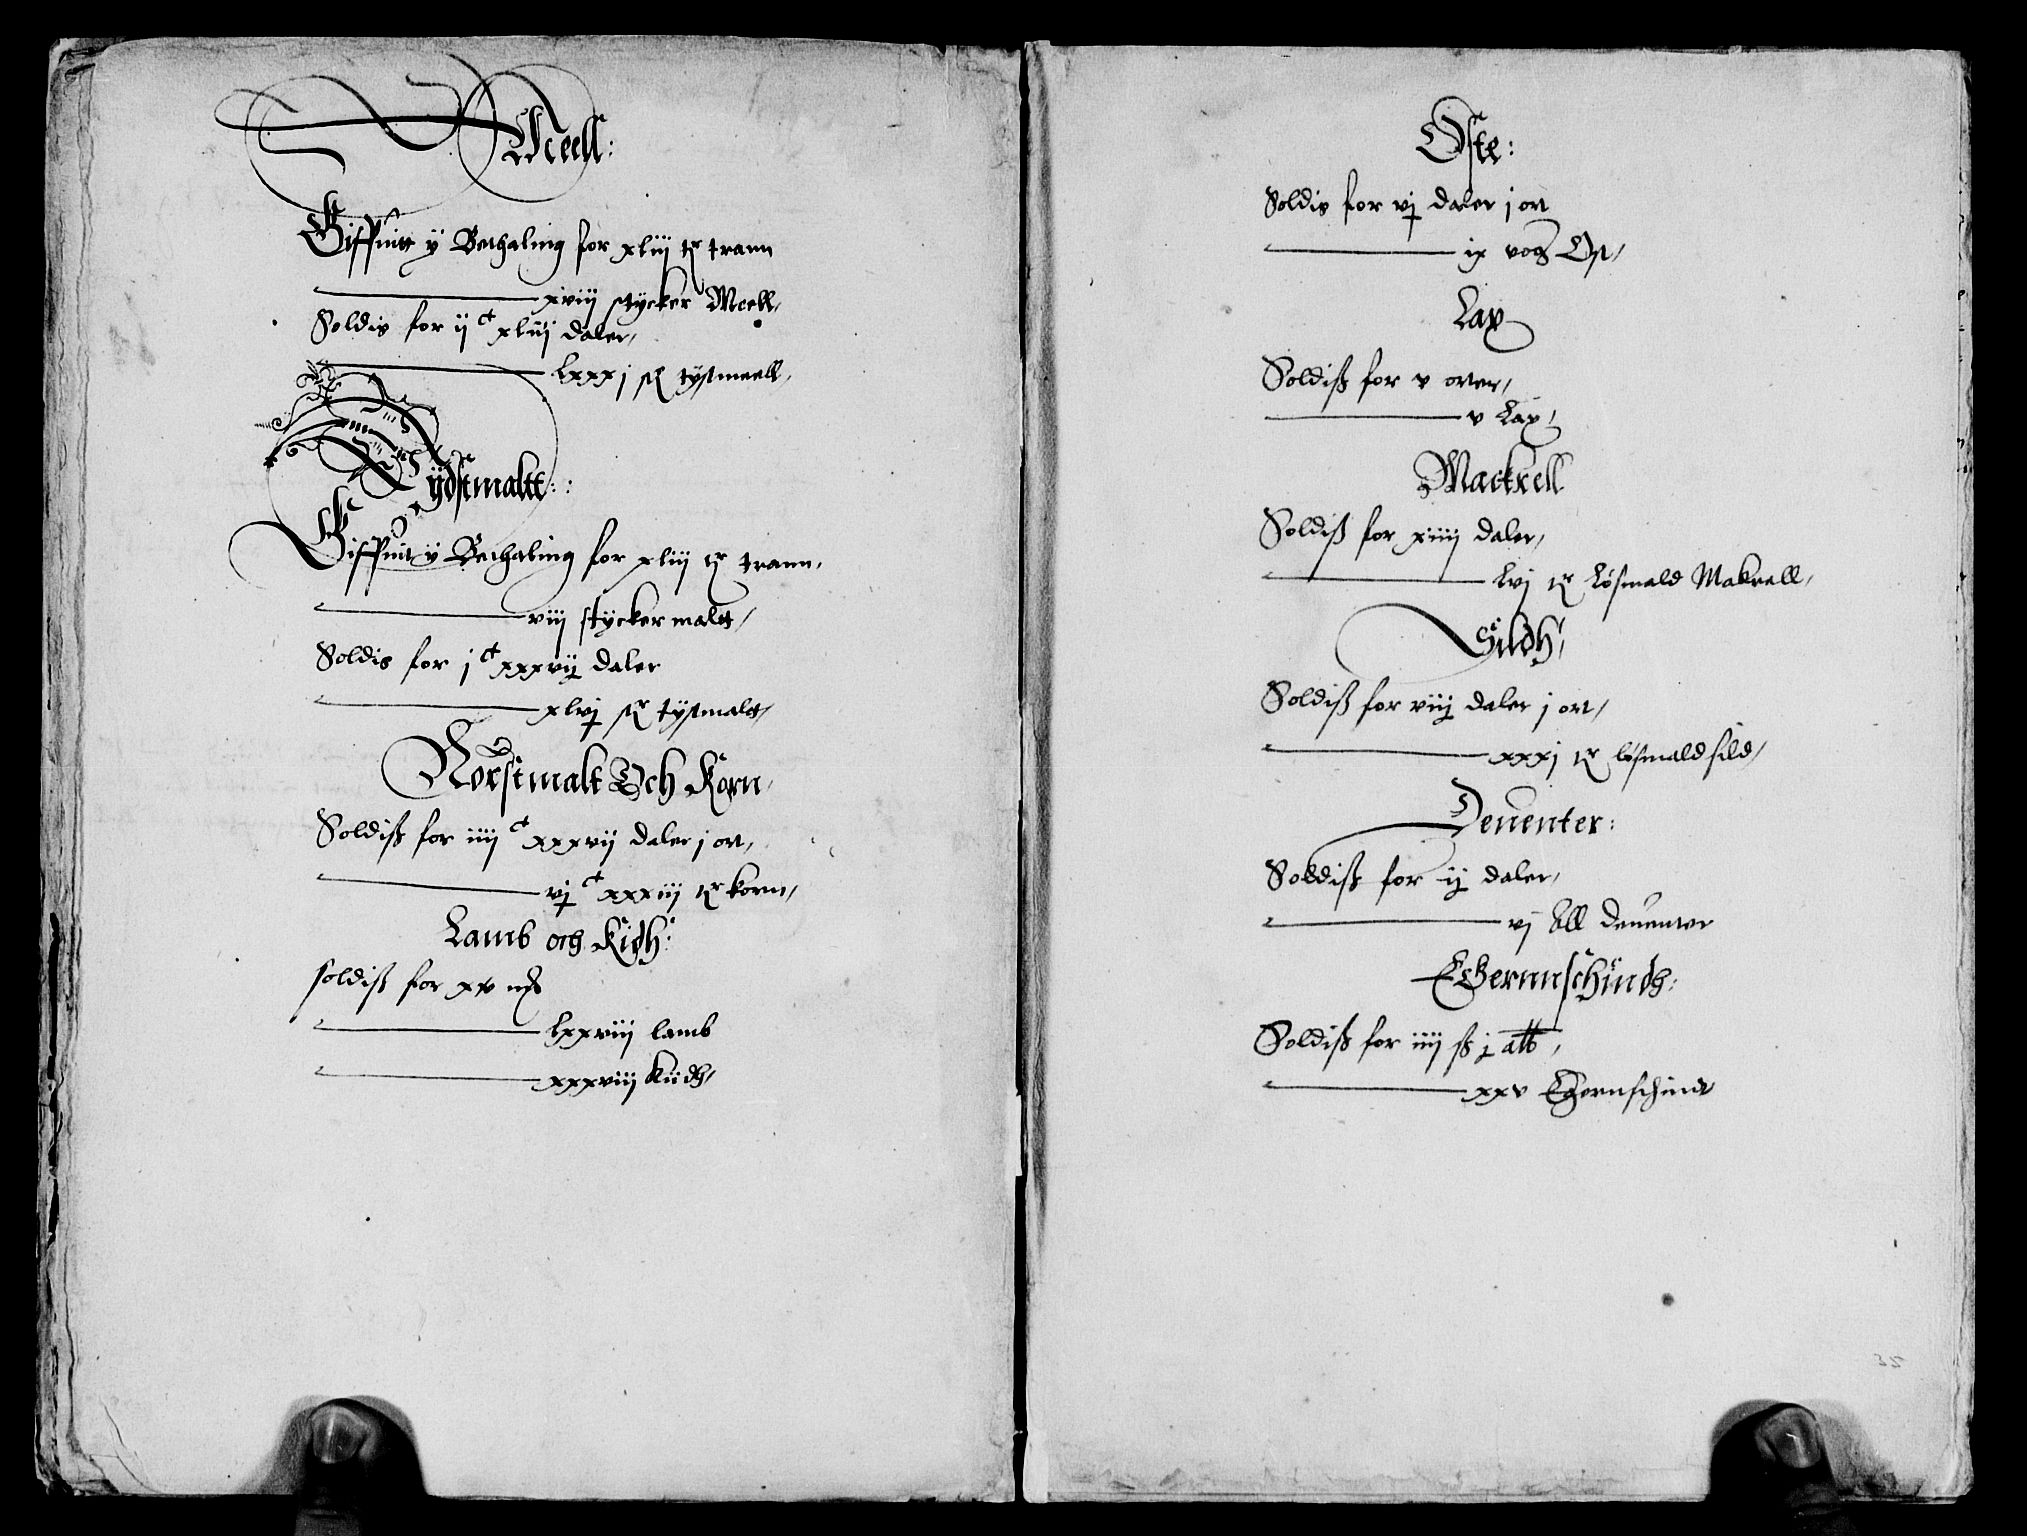 Meell:
Giffuitt y Bethaling for xliij tr trann
xviij stycker Meell,
Soldis for ij ct xliij daler,
lxxxj sk tystmeell,
Tydstmaltt:
Giffuit y Bethaling for xliij tr trann,
viij stycker malt,
Soldis for j ct xxxvij daler
xlvj sk tystmalt,
Norstmalt Och Korn,
Soldiß for iiij ct xxxvij daler j ort,
vj ct xxxiij tr korn,
Lamb och Kidh:
soldiß for xv
lxxviij lamb
xxxviij Kiidh,
Oste:
Soldis for vj daler j ort
ix vog Ost,
Lax
Soldiß for v orter,
v Lax,
Mackrell
Soldiß for xiiij daler,
lvj tr Løsmald Makrell,
Sildh,
Soldiß for viij daler j ort,
xxxj tr løsmald sild,
Deuenter:
Soldiß for ij daler,
vj All Deuenter
Egernnschindh:
Soldiß for iiij ß j alb,
xxv Egernschindt
35